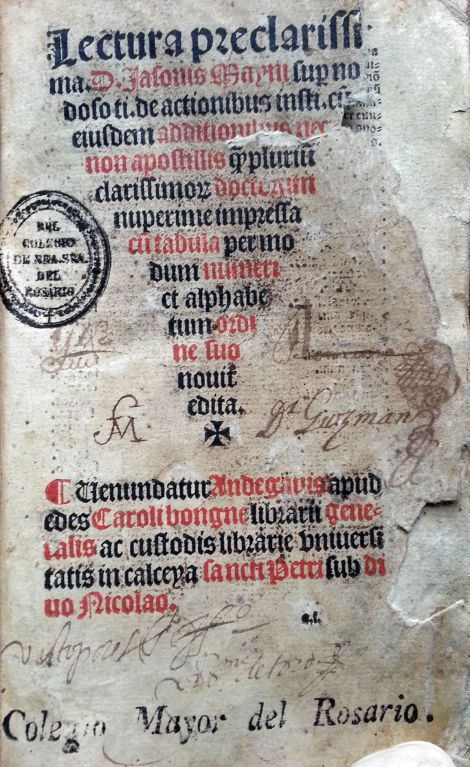 Lectura preclarissi
ma. D. Jasonis Mayni sup no
doso ti. de actionibus insti. cū
eiusdem additionibus nec
non apostillis q̄pluriū
clarissimoꝝ doctorum
nuperime impressa
cū tabula per mo
dum numeri
et alphabe
tum ordi
ne suo
noviť
edita.
✠
DEL
COLEGIO
DE NRA. SRA.
DEL
ROSARIO
Guzman
¶ Uenundatur Andegavis apud
edes Caroli bongne librarii gene-
ralis ac custodis librarie vniversi
tatis in calceya sancti Petri sub di
uo Nicolao.
Colegio Mayor del Rosario.